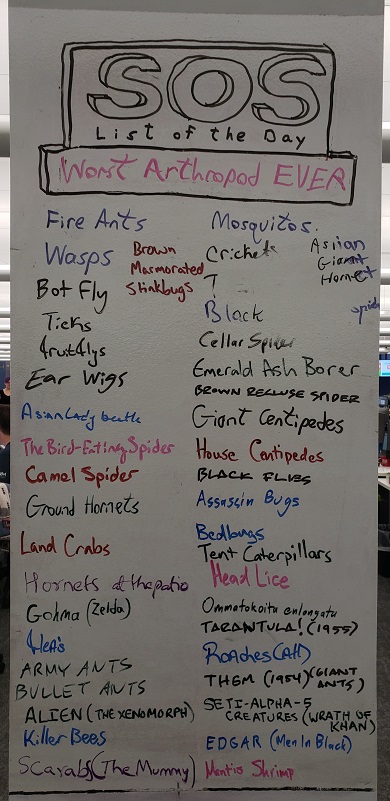 SOS
List of the Day
Worst Arthropod EVER
Fire Ants
Wasps
Brown
Marmorated
Stinkbugs
Bot Fly
Ticks
fruitflys
Ear Wigs
Asian Lady beetle
The Bird-Eating Spider
Camel Spider
Ground Hornets
Land Crabs
Hornets at the patio
Gohma (Zelda)
flea's
ARMY ANTS
BULLET ANTS
ALIEN (THE XENOMORPH)
Killer Bees
Scarabs (The Mummy)
Mosquitos.
Crickets
Asiian
Giant
Hornet
T
Black
spid
Cellar Spider
Emerald Ash Borer
BROWN RECLUSE SPIDER
Giant Centipedes
House Centipedes
BLACK FLIES
Assassin Bugs
Bedbugs
Tent Caterpillars
Head Lice
Ommatokoita elongata
TARANTULA! (1955)
Roaches (All)
THEM (1954) (GIANT
ANTS)
SETI-ALPHA-5
CREATURES (WRATH OF
KHAN)
EDGAR (Men In Black)
Mantis Shrimp